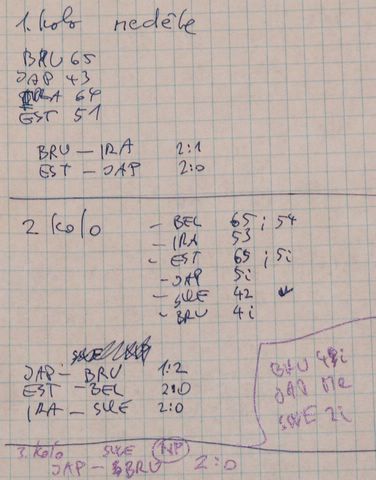 1. kolo neděle
BRU 65
JAP 43
IRA 64
EST 51
BRU – IRA 2:1
EST – JAP 2:0
2 kolo
– BEL 65 ; 54
– IRA 53
– EST 65 ; 5i
– JAP 5i
– SWE 42
– BRU 4i
JAP – BRU 1:2
EST – BEL 2:0
IRA – SWE 2:0
BRU 4i
JAP ne
SWE 2i
3. kolo SWE NP
JAP – BRU 2:0